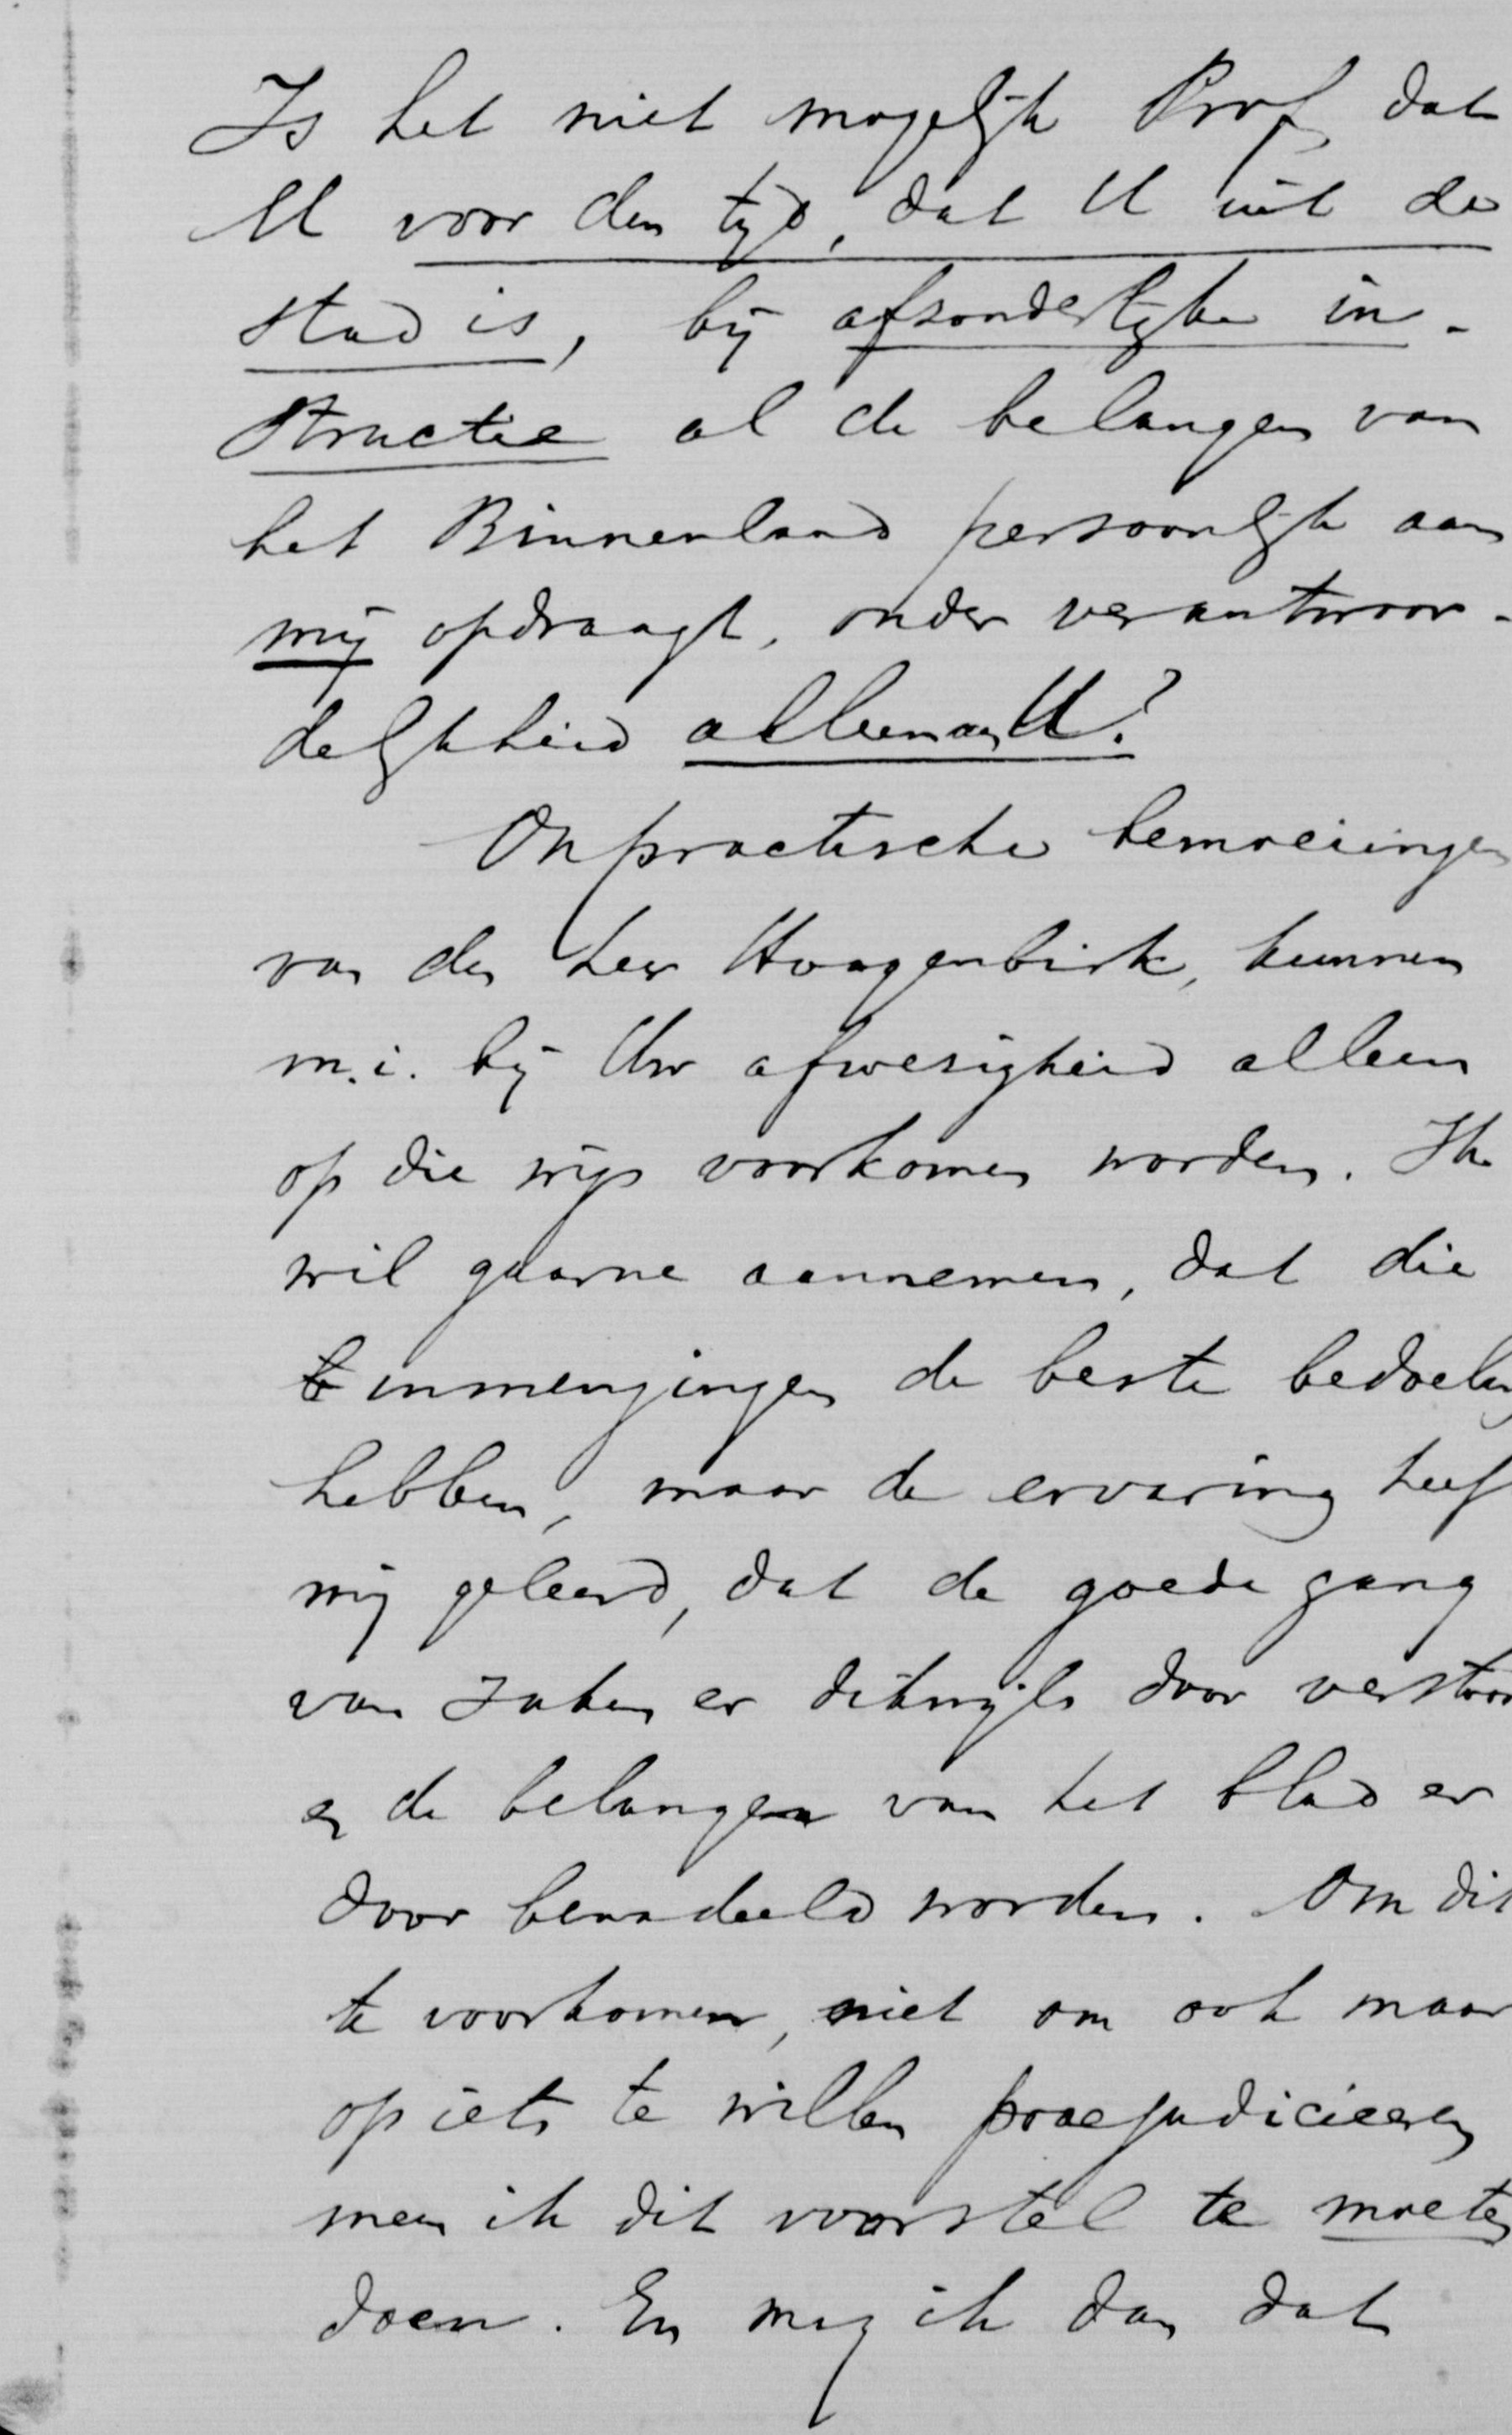 Is het niet mogelijk Prof, dat
U voor den tijd, dat U uit de
stad is, bij afzonderlijke in-
structie al de belangen van
het Binnenland persoonlijk aan
mij opdraagt, onder verantwoor-
delijkheid alleen aan U?
Onpractische bemoeiingen
van den heer Hoogenbirk, kunnen
m.i. bij Uw afwezigheid alleen
op die wijs voorkomen worden. Ik
wil gaarne aannemen, dat die
inmengingen de beste bedoelin
hebben, maar de ervaring heef
mij geleerd, dat de goede gang
van zaken er dikwijls door verstoor
en de belangen van het blad er
door benadeeld worden. Om dit
te voorkomen, niet om ook maar
op iets te willen praejudicieeren
meen ik dit voorstel te moeten
doen. En mag ik dan dat